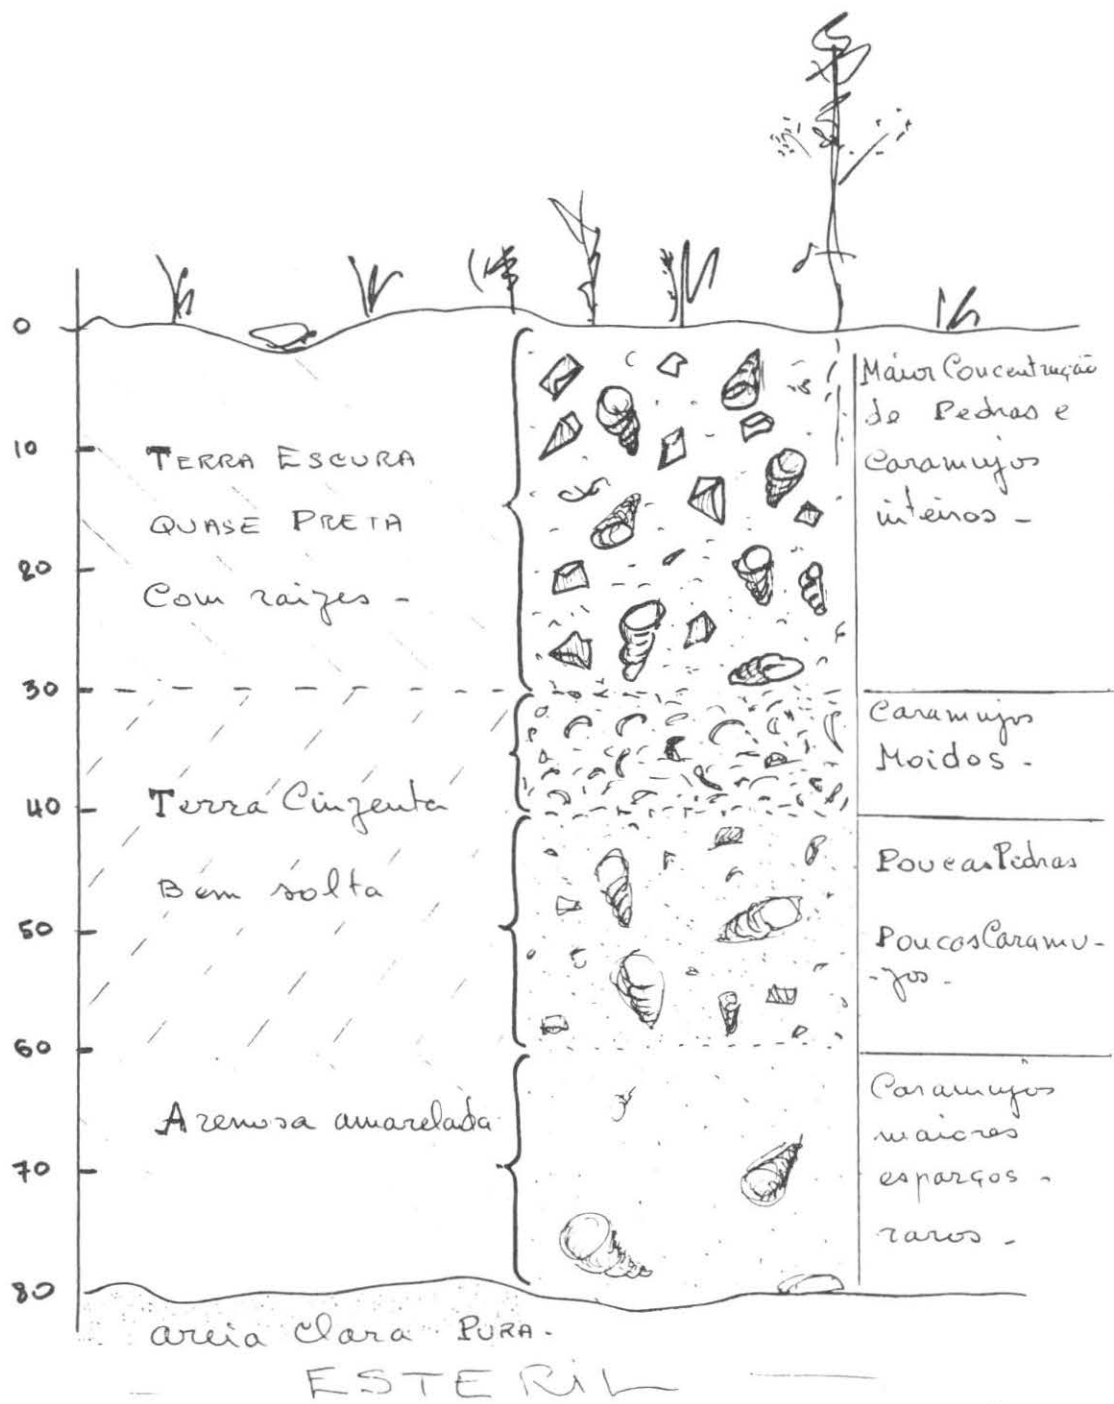 0
10
20
30
40
50
60
70
80
TERRA ESCURA
QUASE PRETA
Com raizes -
Terra Cinzenta
Bem solta
Arenosa amarelada
areia clara PURA.
ESTERIL
Maior Concentração
de Pedras e
Caramujos
inteiros -
Caramujos
Moidos.
Poucas Pedras
Poucos Caramu-
-jos.
Caramujos
maiores
esparços -
raros -